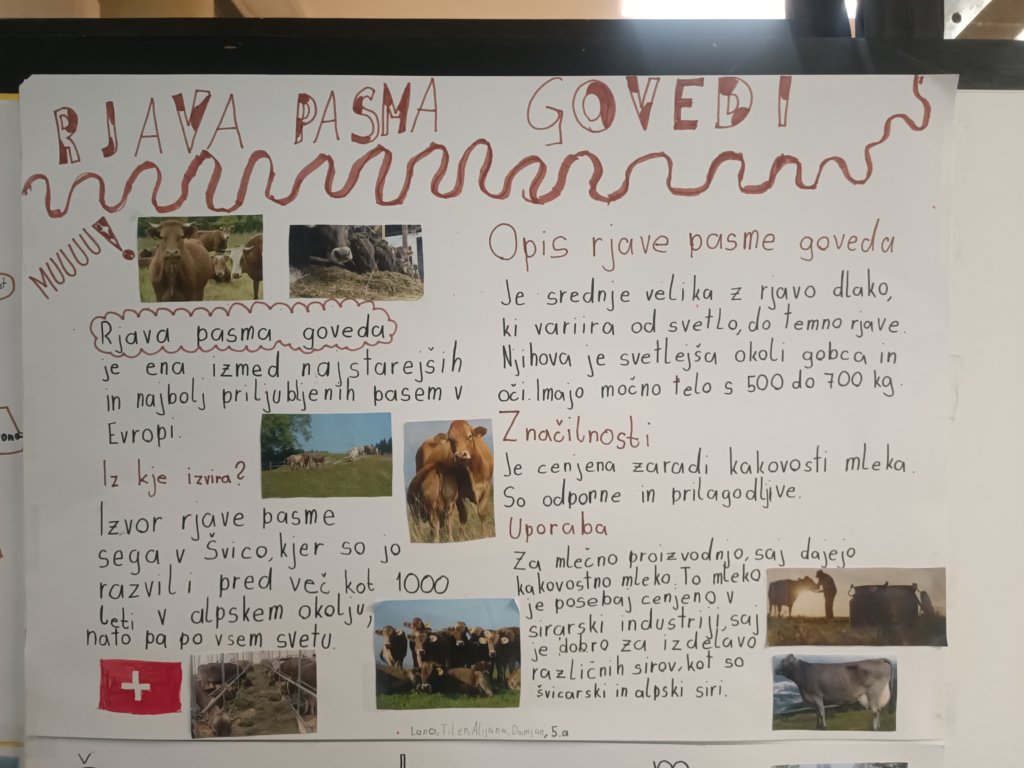 RJAVA PASMA GOVEDI
MUUUU!
Rjava pasma goveda
je ena izmed najstarejših
in najbolj priljubljenih pasem v
Evropi.
Iz kje izvira?
Izvor rjave pasme
sega v Švico, kjer so jo
razvili pred več kot 1000
leti v alpskem okolju,
nato pa po vsem svetu.
Opis rjave pasme goveda
Je srednje velika z rjavo dlako,
ki variira od svetlo, do temno rjave.
Njihova je svetlejša okoli gobca in
oči. Imajo močno telo s 500 do 700 kg.
Značilnosti
Je cenjena zaradi kakovosti mleka.
So odporne in prilagodljive.
Uporaba
Za mlečno proizvodnjo, saj dajejo
kakovostno mleko. To mleko
je posebaj cenjeno v
sirarski industriji, saj
je dobro za izdelavo
različnih sirov, kot so
švicarski in alpski siri.
Lana, Tilen, Alijana, Damjan, 5.a